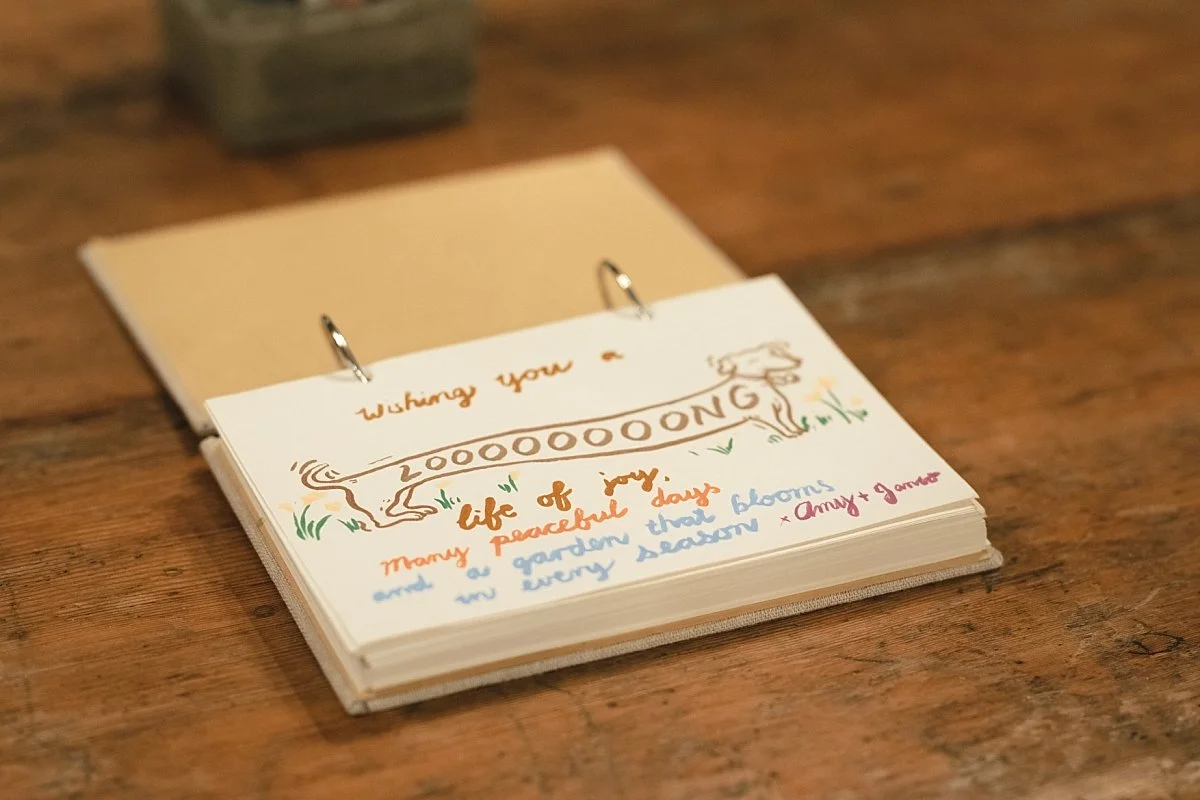 Wishing you a
LOOOOOOOONG
life of joy,
Many peaceful days
and a garden that blooms
in every season
x Amy +